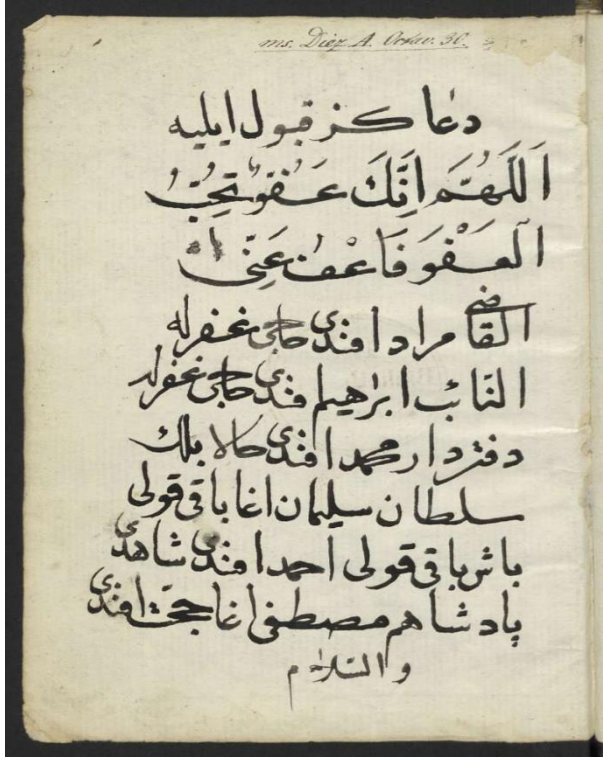 ms. Diez A. Octav. 30.
دعا كز قبول ايليه
اَللَّهُمَّ اِنَّكَ عَفُوٌّ تُحِبُّ
الْعَفْوَ فَاعْفُ عَنِّى
القاضى مراد افندى حاجى غفرله
النائب ابراهيم افندى حاجى غفرله
دفتردار محمد افندى كالا بلك
سلطان سليمان اغا باقى قولى
باش باقى قولى احمد افندى شاهدى
پادشاهم مصطفى اغا حجت افندى
والسلام